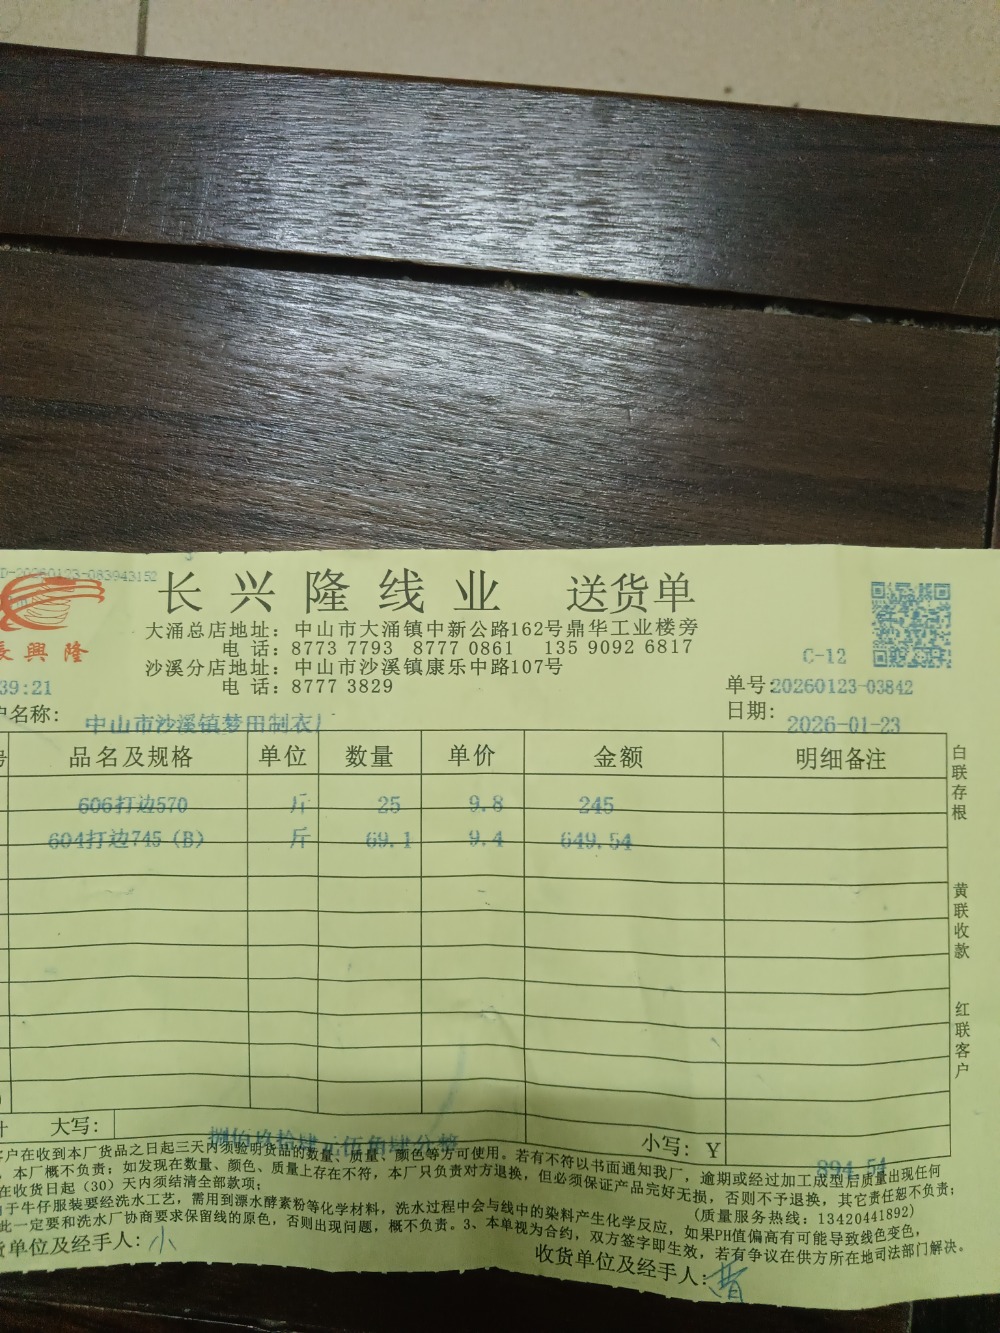 D-20260123-083943152
长兴隆线业 送货单
長興隆
大涌总店地址：中山市大涌镇中新公路162号鼎华工业楼旁
电 话：8773 7793 8777 0861 135 9092 6817
沙溪分店地址：中山市沙溪镇康乐中路107号
电 话：8777 3829
C-12
39:21
单号：20260123-03842
日期：2026-01-23
户名称：中山市沙溪镇梦田制衣厂
号 品名及规格 单位 数量 单价 金额 明细备注
606打边570 斤 25 9.8 245
604打边745（B） 斤 69.1 9.4 649.54
白联存根
黄联收款
红联客户
计 大写：捌佰玖拾肆元伍角肆分整 小写：Y 894.54
客户在收到本厂货品之日起三天内须验明货品的数量、质量、颜色等方可使用。若有不符以书面通知我厂，逾期或经过加工成型后质量出现任何
，本厂概不负责；如发现在数量、颜色、质量上存在不符，本厂只负责对方退换，但必须保证产品完好无损，否则不予退换，其它责任恕不负责；
在收货日起（30）天内须结清全部款项；
(质量服务热线：13420441892)
由于牛仔服装要经洗水工艺，需用到漂水酵素粉等化学材料，洗水过程中会与线中的染料产生化学反应，如果PH值偏高有可能导致线色变色，
此一定要和洗水厂协商要求保留线的原色，否则出现问题，概不负责。3、本单视为合约，双方签字即生效，若有争议在供方所在地司法部门解决。
货单位及经手人：小
收货单位及经手人：